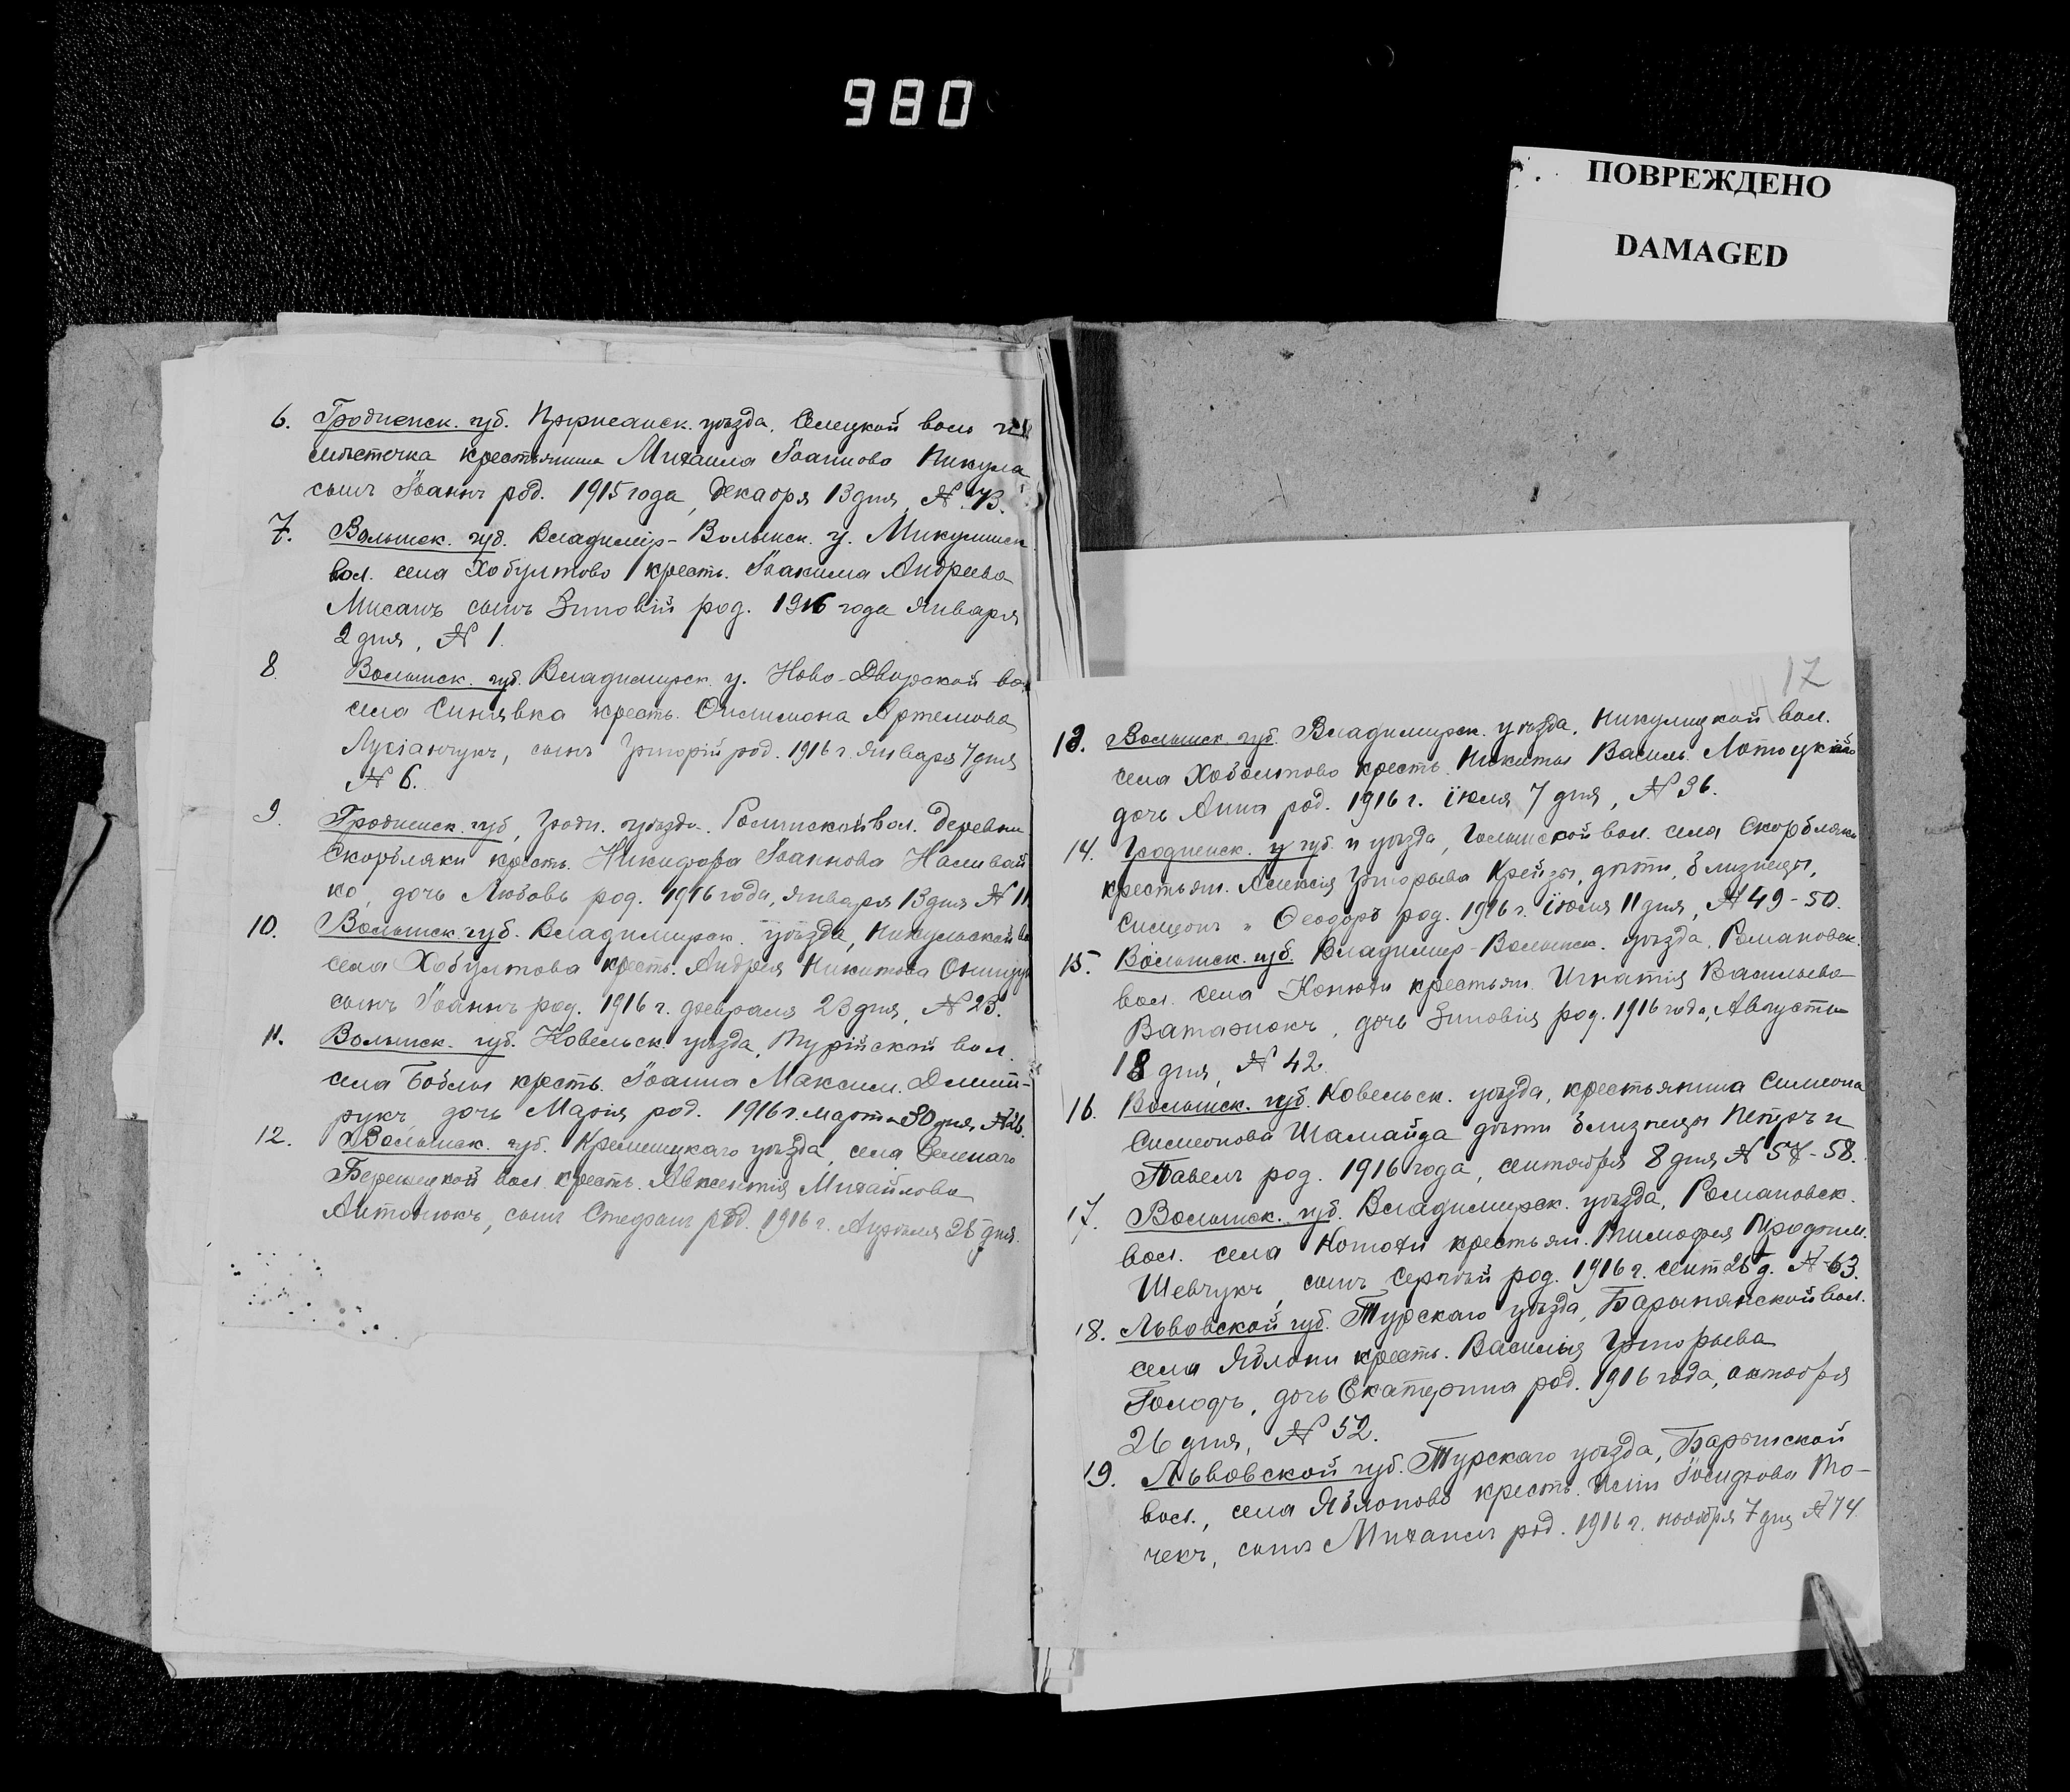 980
ПОВРЕЖДЕНО
DAMAGED
6. Гродненск. губ. Пружанск. уѣзда, Селецкой вол. и
мѣстечка крестьянина Михаила Іоаннова Никула
сынъ Іоаннъ род. 1915 года, декабря 13 дня, № 73.
7. Волынск. губ. Владимір-Волынск. у. Микулинск.
вол. села Хобултово крестьян. Іоакима Андреева
Мисанъ сынъ Зиновій род. 1916 года января
2 дня, № 1.
8. Волынск. губ. Владимирск. у. Ново-Дворской вол.
села Синявка кресть. Онисимона Артемова
Лукіанчукъ, сынъ Григорій род. 1916 г. января 7 дня
№ 6.
9. Гродненск. губ., Гродн. уѣзда. Голынской вол. деревни
Скорбляки кресть. Никифора Іоаннова Наливай
ко, дочь Любовь род. 1916 года, января 13 дня № 11.
10. Волынск. губ. Владимирск. уѣзда, Никульской во
села Хобултова кресть. Андрея Никитова
сынъ Іоаннъ род. 1916 г. февраля 23 дня, № 23.
11. Волынск. губ. Ковельск. уѣзда, Турійской вол.
села Боблы кресть. Іоанна Максим. Дмит-
рукъ дочь Марія род. 1916 г. марта 30 дня, № 26.
12. Волынск. губ. Кременецкаго уѣзда, села Зеленаго
Бережецкой вол. кресть. Авксентія Михайлова
Антонюкъ, сынъ Стефанъ род. 1916 г. Апрѣля 28 дня.
17
13. Волынск. губ. Владимирск. уѣзда, Никулицкой вол.
села Хоболтово кресть. Никиты Васил. Лотоцкаго
дочь Анна род. 1916 г. іюля 7 дня, № 36.
14. Гродненск. у губ. и уѣзда, Голынской вол. села Скорбляки
крестьян. Алексія Григорьева Крейзы, дѣти, близнецы,
Симеонъ и Ѳеодоръ род. 1916 г. іюля 11 дня, № 49-50.
15. Волынск. губ. Владимир-Волынск. уѣзда, Романовск.
вол. села Конюхи крестьян. Игнатія Васильева
Ватажокъ, дочь Зиновія род. 1916 года, Августа
18 дня, № 42.
16. Волынск. губ. Ковельск. уѣзда, крестьянина Симеона
Симеонова Шамайда дѣти близнецы Петръ и
Павелъ род. 1916 года, сентября 8 дня, № 57-58.
17. Волынск. губ. Владимирск. уѣзда, Романовск.
вол. села крестьян. Тимофея Трофим.
Шевчукъ, сынъ Сергѣй род. 1916 г. сент 26 д. № 63.
18. Львовской губ. Турскаго уѣзда, Барынянской вол.
села Яблони кресть. Василія Григорьева
Голодъ, дочь Екатерина род. 1916 года, октября
26 дня, № 52.
19. Львовской губ. Турскаго уѣзда, Барынской
вол., села Яблоново кресть. Ильи Іосифова То-
чекъ, сынъ Михаилъ род. 1916 г. ноября 7 дня № 74